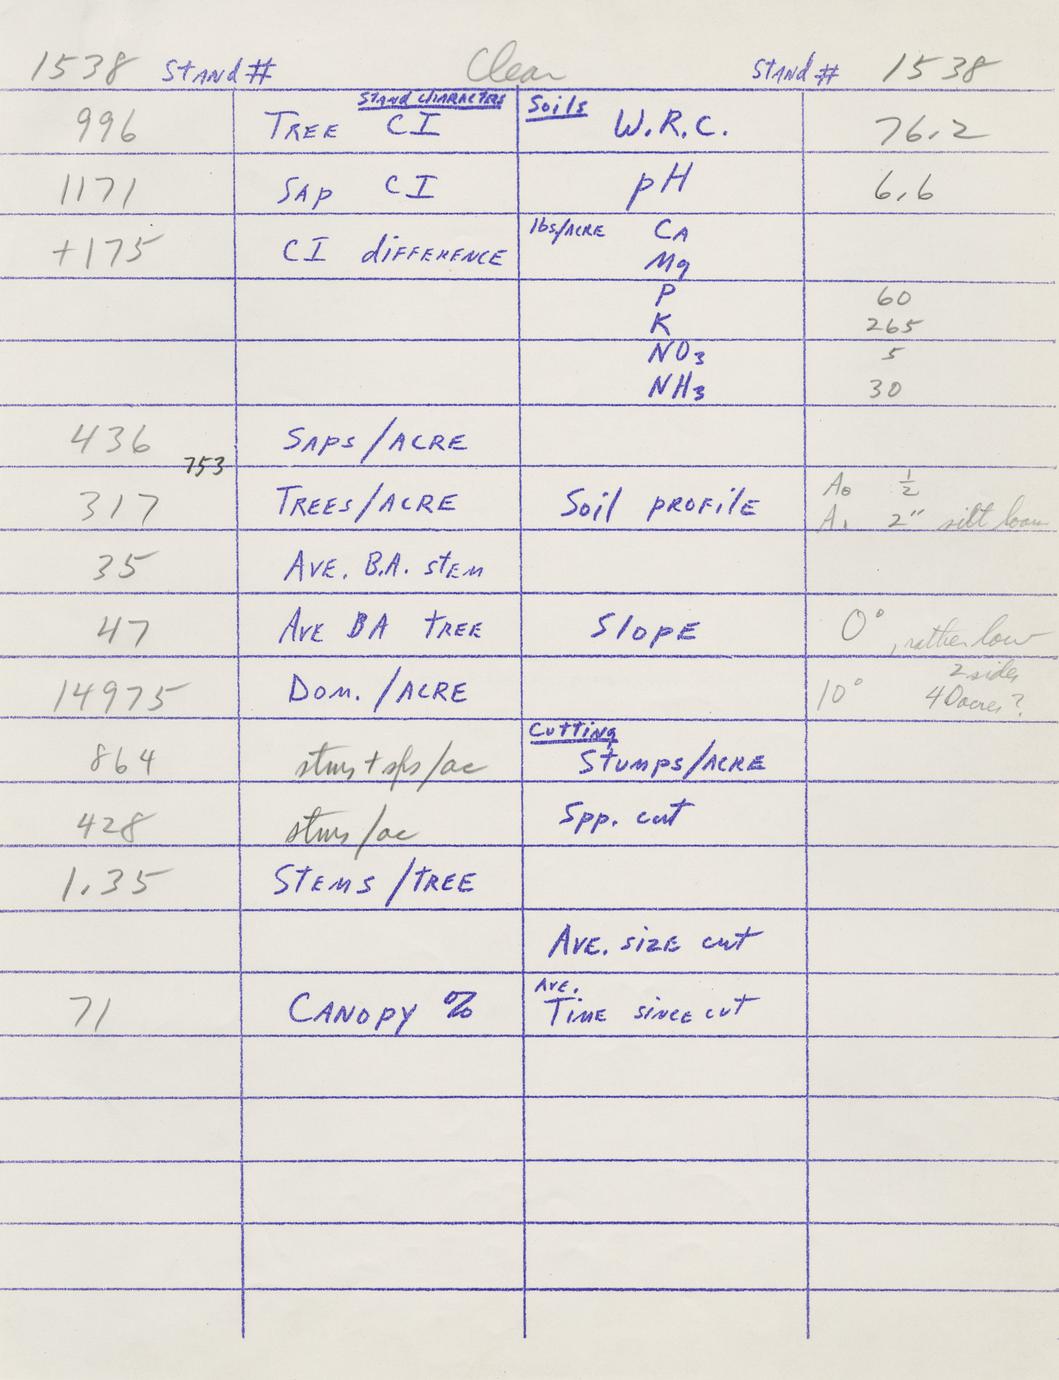 1538 Stand # Clear Stand # 1538
Stand Characters Soils
996 Tree CI W.R.C. 76.2
1171 Sap CI pH 6.6
+175 CI difference lbs/Acre Ca
Mg
P 60
K 265
NO3 5
NH3 30
436 Saps/Acre
753
317 Trees/Acre Soil profile A0 1/2
A1 2" silt loam
35 Ave. B.A. stem
47 Ave BA tree Slope 0°, rather low
2 sides
14975 Dom./Acre 10° 40 acres?
Cutting
864 stms + sps/ac Stumps/Acre
428 stms/ac Spp. cut
1.35 Stems/tree
Ave. size cut
Ave.
71 Canopy % Time since cut